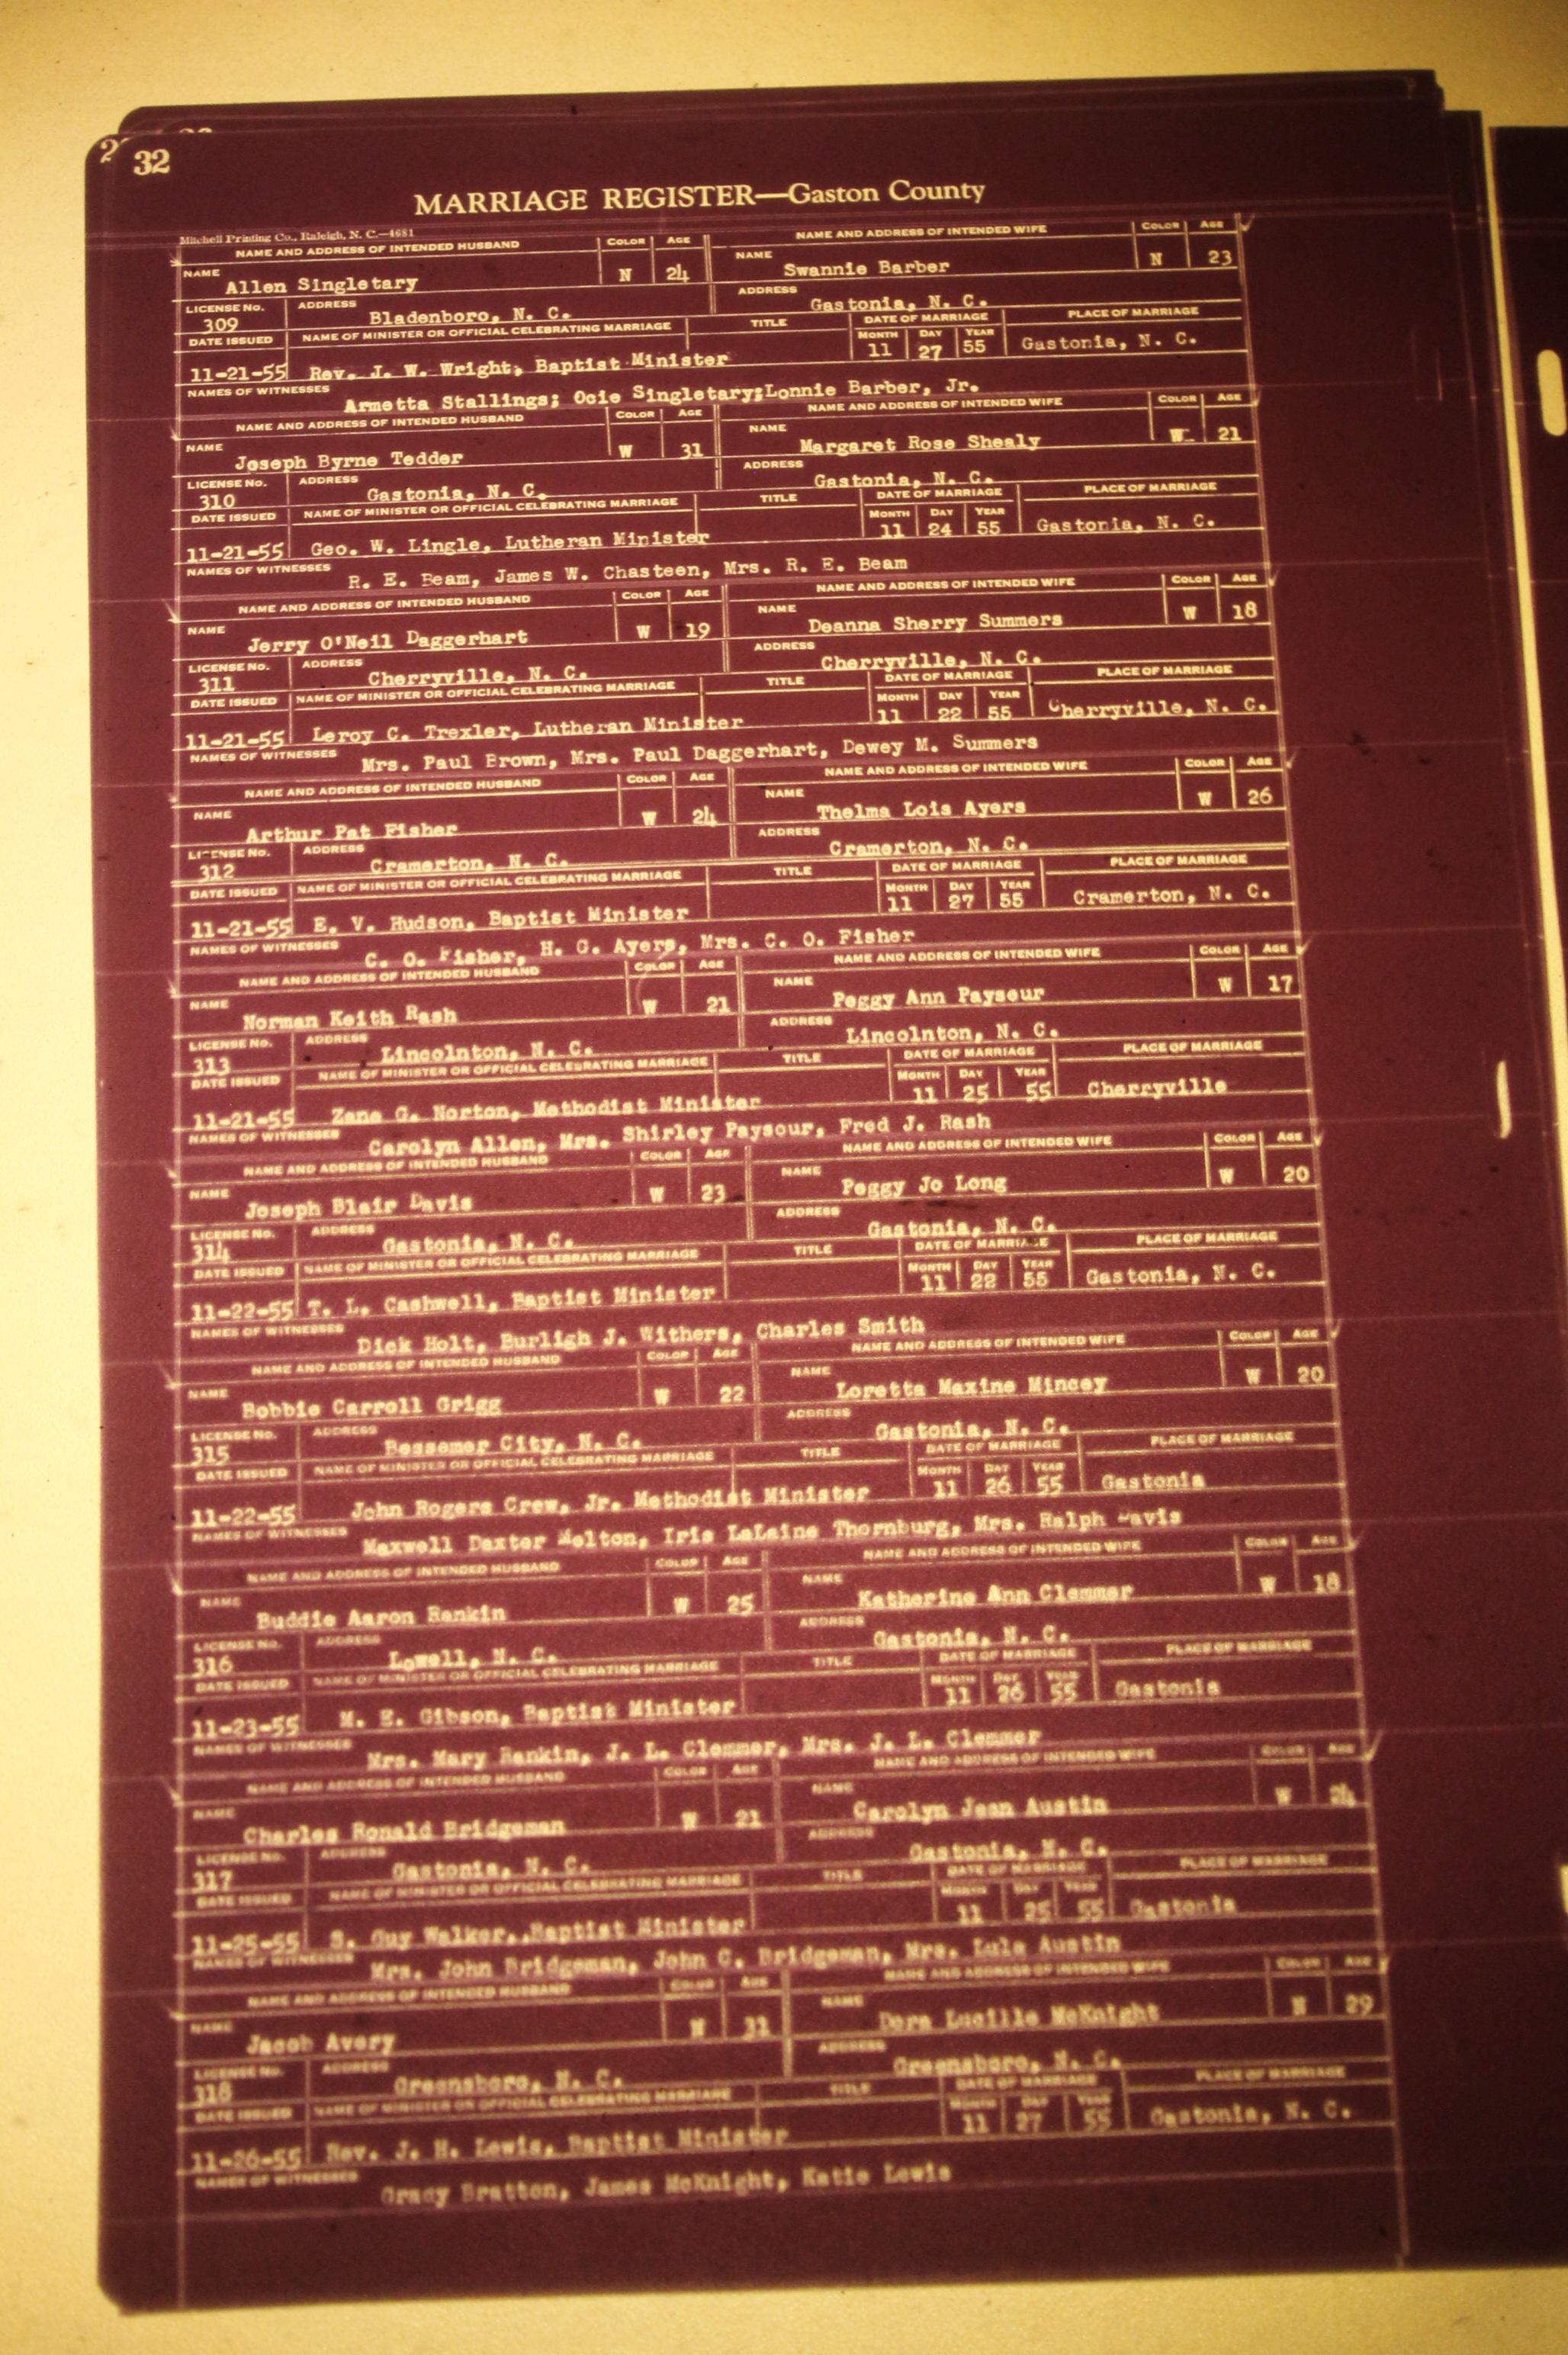 2
32
32
MARRIAGE REGISTER—Gaston County
Mitchell Printing Co., Raleigh, N. C.—4681
NAME AND ADDRESS OF INTENDED HUSBAND COLOR AGE NAME AND ADDRESS OF INTENDED WIFE COLOR AGE
NAME Allen Singletary N 24 NAME Swannie Barber N 23
LICENSE No. 309 ADDRESS Bladenboro, N. C. ADDRESS Gastonia, N. C.
DATE ISSUED NAME OF MINISTER OR OFFICIAL CELEBRATING MARRIAGE TITLE DATE OF MARRIAGE PLACE OF MARRIAGE
MONTH DAY YEAR
11-21-55 Rev. J. W. Wright, Baptist Minister 11 27 55 Gastonia, N. C.
NAMES OF WITNESSES Armetta Stallings; Ocie Singletary;Lonnie Barber, Jr.
NAME AND ADDRESS OF INTENDED HUSBAND COLOR AGE NAME AND ADDRESS OF INTENDED WIFE COLOR AGE
NAME Joseph Byrne Tedder W 31 NAME Margaret Rose Shealy W 21
LICENSE No. 310 ADDRESS Gastonia, N. C. ADDRESS Gastonia, N. C.
DATE ISSUED NAME OF MINISTER OR OFFICIAL CELEBRATING MARRIAGE TITLE DATE OF MARRIAGE PLACE OF MARRIAGE
MONTH DAY YEAR
11-21-55 Geo. W. Lingle, Lutheran Minister 11 24 55 Gastonia, N. C.
NAMES OF WITNESSES R. E. Beam, James W. Chasteen, Mrs. R. E. Beam
NAME AND ADDRESS OF INTENDED HUSBAND COLOR AGE NAME AND ADDRESS OF INTENDED WIFE COLOR AGE
NAME Jerry O'Neil Daggerhart W 19 NAME Deanna Sherry Summers W 18
LICENSE No. 311 ADDRESS Cherryville, N. C. ADDRESS Cherryville, N. C.
DATE ISSUED NAME OF MINISTER OR OFFICIAL CELEBRATING MARRIAGE TITLE DATE OF MARRIAGE PLACE OF MARRIAGE
MONTH DAY YEAR
11-21-55 Leroy C. Trexler, Lutheran Minister 11 22 55 Cherryville, N. C.
NAMES OF WITNESSES Mrs. Paul Brown, Mrs. Paul Daggerhart, Dewey M. Summers
NAME AND ADDRESS OF INTENDED HUSBAND COLOR AGE NAME AND ADDRESS OF INTENDED WIFE COLOR AGE
NAME Arthur Pat Fisher W 24 NAME Thelma Lois Ayers W 26
LICENSE No. 312 ADDRESS Cramerton, N. C. ADDRESS Cramerton, N. C.
DATE ISSUED NAME OF MINISTER OR OFFICIAL CELEBRATING MARRIAGE TITLE DATE OF MARRIAGE PLACE OF MARRIAGE
MONTH DAY YEAR
11-21-55 E. V. Hudson, Baptist Minister 11 27 55 Cramerton, N. C.
NAMES OF WITNESSES C. O. Fisher, H. G. Ayers, Mrs. C. O. Fisher
NAME AND ADDRESS OF INTENDED HUSBAND COLOR AGE NAME AND ADDRESS OF INTENDED WIFE COLOR AGE
NAME Norman Keith Rash W 21 NAME Peggy Ann Payseur W 17
LICENSE No. 313 ADDRESS Lincolnton, N. C. ADDRESS Lincolnton, N. C.
DATE ISSUED NAME OF MINISTER OR OFFICIAL CELEBRATING MARRIAGE TITLE DATE OF MARRIAGE PLACE OF MARRIAGE
MONTH DAY YEAR
11-21-55 Zane G. Norton, Methodist Minister 11 25 55 Cherryville
NAMES OF WITNESSES Carolyn Allen, Mrs. Shirley Paysour, Fred J. Rash
NAME AND ADDRESS OF INTENDED HUSBAND COLOR AGE NAME AND ADDRESS OF INTENDED WIFE COLOR AGE
NAME Joseph Blair Davis W 23 NAME Peggy Jo Long W 20
LICENSE No. 314 ADDRESS Gastonia, N. C. ADDRESS Gastonia, N. C.
DATE ISSUED NAME OF MINISTER OR OFFICIAL CELEBRATING MARRIAGE TITLE DATE OF MARRIAGE PLACE OF MARRIAGE
MONTH DAY YEAR
11-22-55 T. L. Cashwell, Baptist Minister 11 22 55 Gastonia, N. C.
NAMES OF WITNESSES Dick Holt, Burligh J. Withers, Charles Smith
NAME AND ADDRESS OF INTENDED HUSBAND COLOR AGE NAME AND ADDRESS OF INTENDED WIFE COLOR AGE
NAME Bobbie Carroll Grigg W 22 NAME Loretta Maxine Mincey W 20
LICENSE No. 315 ADDRESS Bessemer City, N. C. ADDRESS Gastonia, N. C.
DATE ISSUED NAME OF MINISTER OR OFFICIAL CELEBRATING MARRIAGE TITLE DATE OF MARRIAGE PLACE OF MARRIAGE
MONTH DAY YEAR
11-22-55 John Rogers Crew, Jr. Methodist Minister 11 26 55 Gastonia
NAMES OF WITNESSES Maxwell Daxter Melton, Iris LaLaine Thornburg, Mrs. Ralph Davis
NAME AND ADDRESS OF INTENDED HUSBAND COLOR AGE NAME AND ADDRESS OF INTENDED WIFE COLOR AGE
NAME Buddie Aaron Rankin W 25 NAME Katherine Ann Clemmer W 18
LICENSE No. 316 ADDRESS Lowell, N. C. ADDRESS Gastonia, N. C.
DATE ISSUED NAME OF MINISTER OR OFFICIAL CELEBRATING MARRIAGE TITLE DATE OF MARRIAGE PLACE OF MARRIAGE
MONTH DAY YEAR
11-23-55 M. E. Gibson, Baptist Minister 11 26 55 Gastonia
NAMES OF WITNESSES Mrs. Mary Rankin, J. L. Clemmer, Mrs. J. L. Clemmer
NAME AND ADDRESS OF INTENDED HUSBAND COLOR AGE NAME AND ADDRESS OF INTENDED WIFE COLOR AGE
NAME Charles Ronald Bridgeman W 21 NAME Carolyn Jean Austin W 24
LICENSE No. 317 ADDRESS Gastonia, N. C. ADDRESS Gastonia, N. C.
DATE ISSUED NAME OF MINISTER OR OFFICIAL CELEBRATING MARRIAGE TITLE DATE OF MARRIAGE PLACE OF MARRIAGE
MONTH DAY YEAR
11-25-55 S. Guy Walker,.Baptist Minister 11 25 55 Gastonia
NAMES OF WITNESSES Mrs. John Bridgeman, John C. Bridgeman, Mrs. Lula Austin
NAME AND ADDRESS OF INTENDED HUSBAND COLOR AGE NAME AND ADDRESS OF INTENDED WIFE COLOR AGE
NAME Jacob Avery N 31 NAME Dora Lucille McKnight N 29
LICENSE No. 318 ADDRESS Greensboro, N. C. ADDRESS Greensboro, N. C.
DATE ISSUED NAME OF MINISTER OR OFFICIAL CELEBRATING MARRIAGE TITLE DATE OF MARRIAGE PLACE OF MARRIAGE
MONTH DAY YEAR
11-26-55 Rev. J. H. Lewis, Baptist Minister 11 27 55 Gastonia, N. C.
NAMES OF WITNESSES Gracy Bratton, James McKnight, Katie Lewis